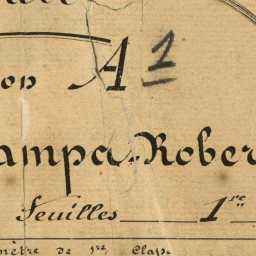 on A 1
ampa-Rober
Feuilles 1re
mètre de 1re Clas